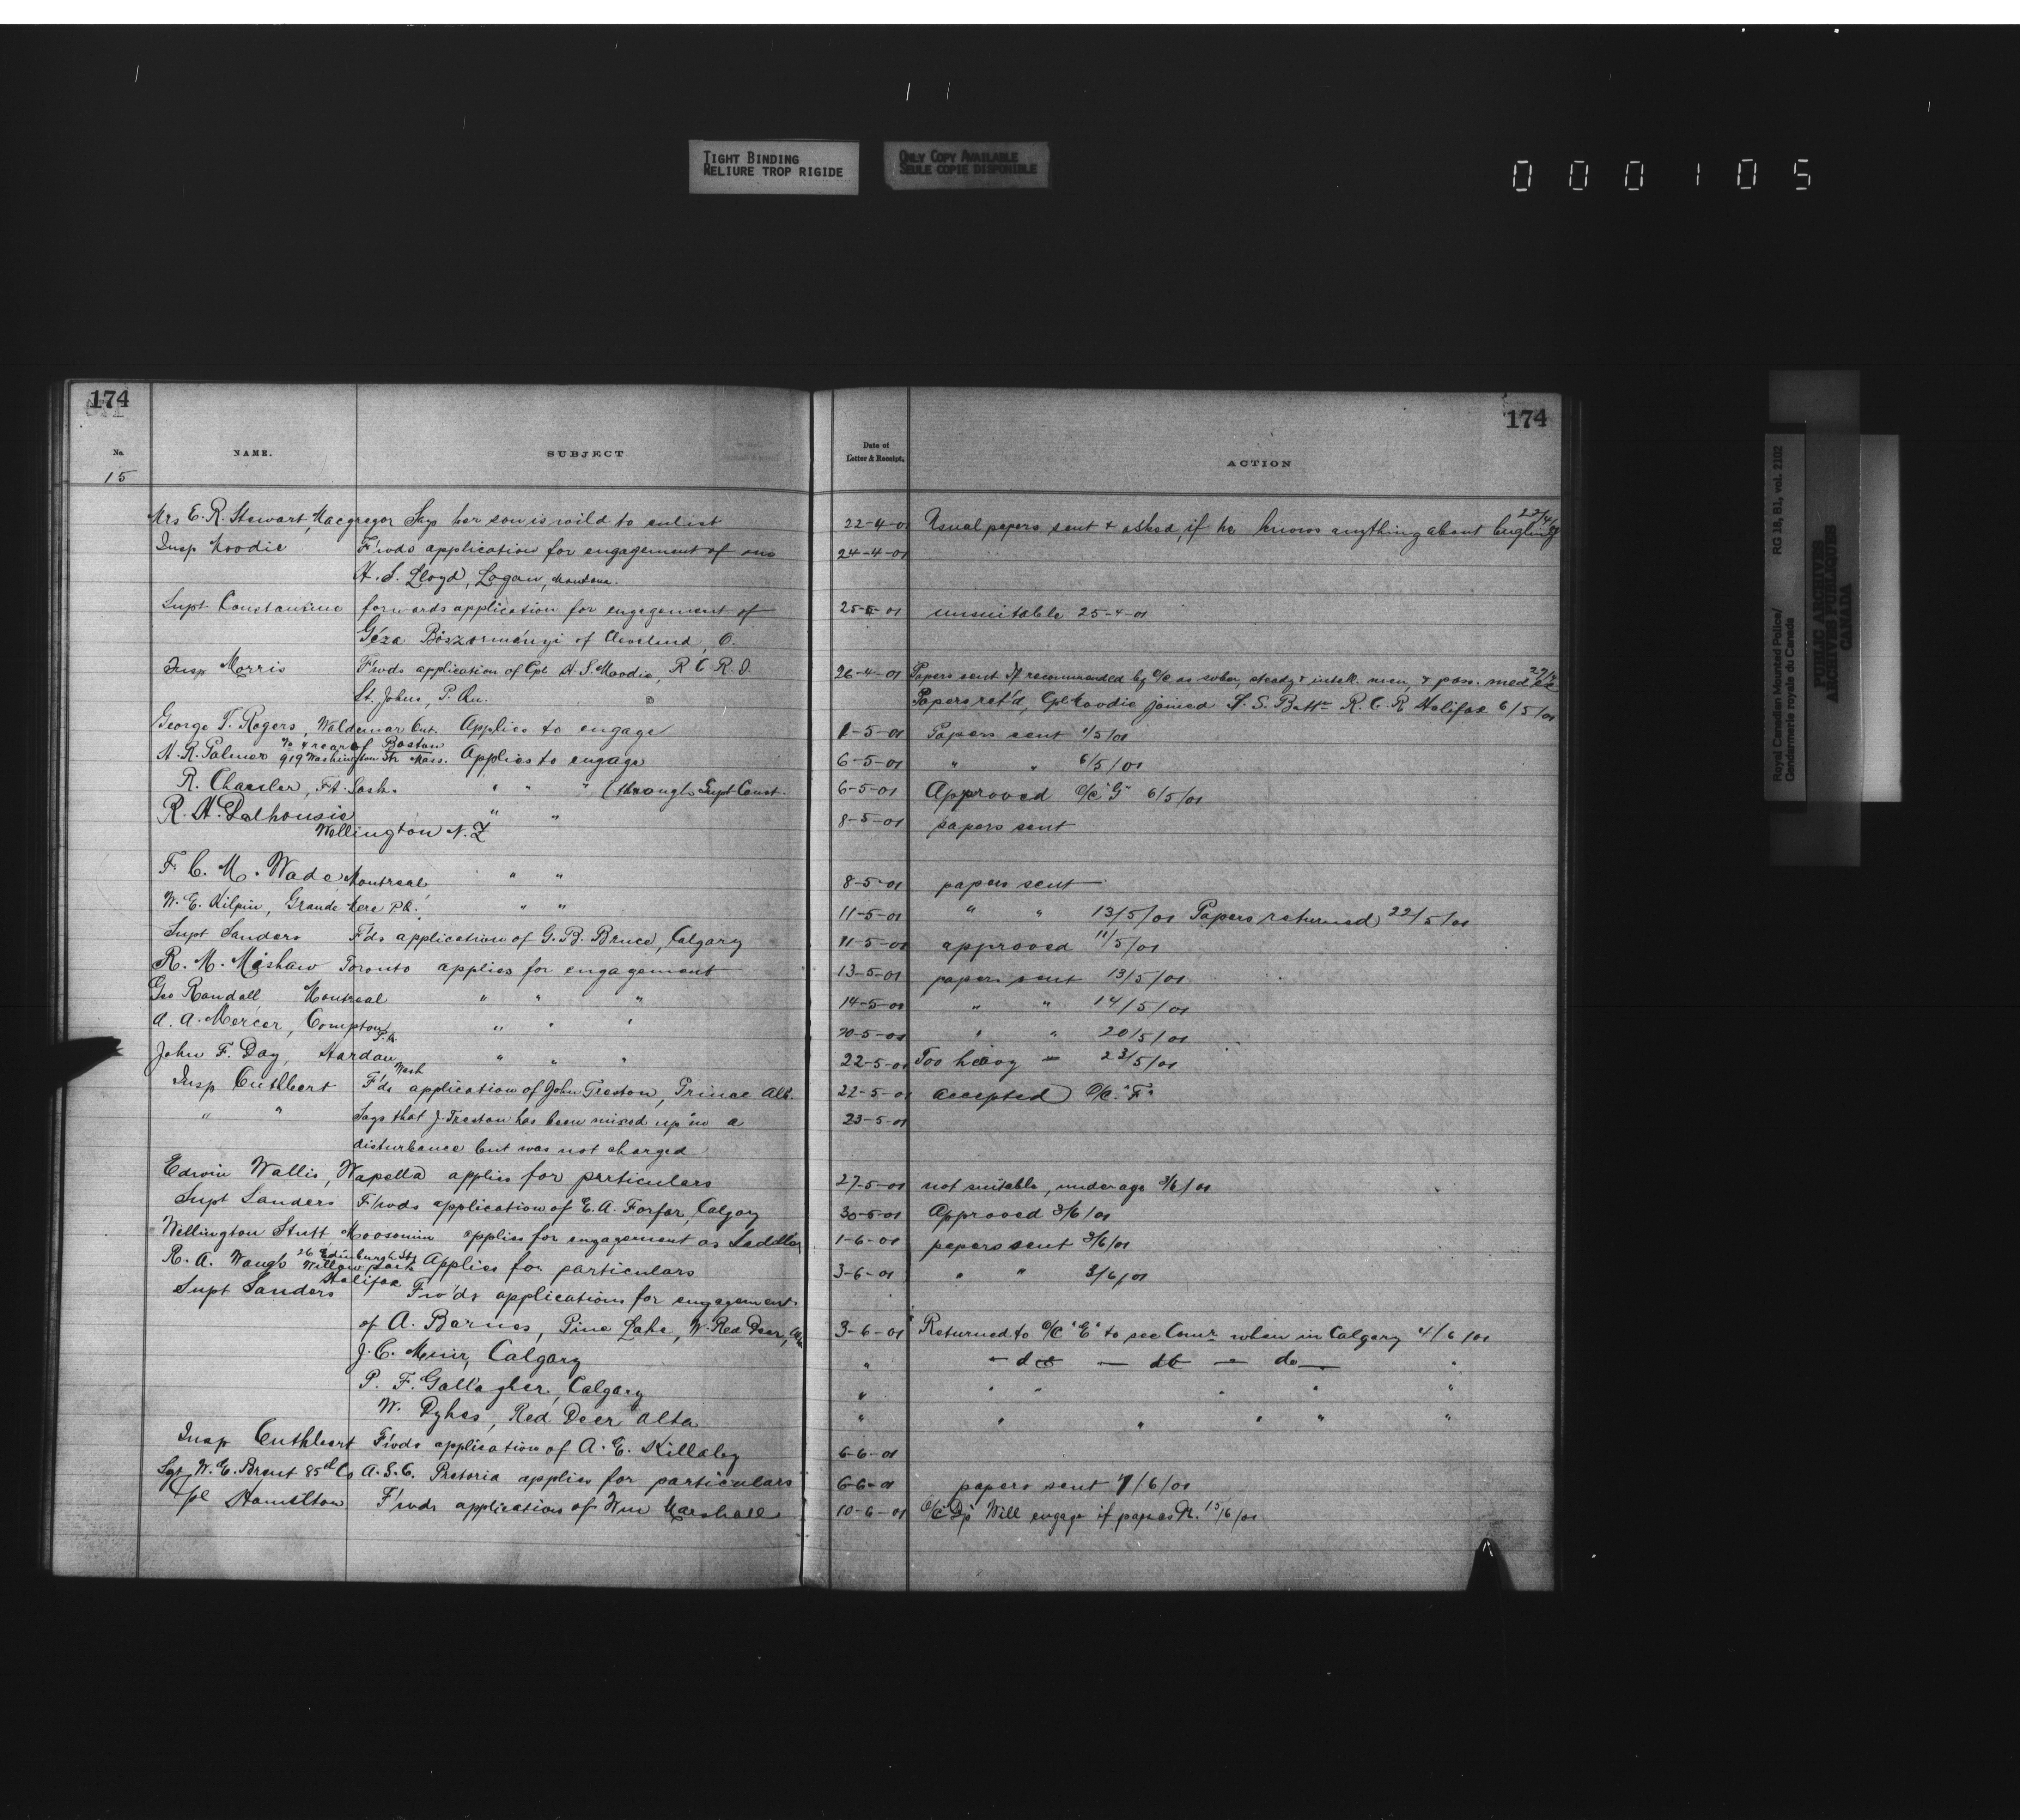 TIGHT BINDING
RELIURE TROP RIGIDE
ONLY COPY AVAILABLE
SEULE COPIE DISPONIBLE
000105
174
174
No. NAME. SUBJECT Date of Letter & Receipt. ACTION
15
Mrs E. R. Stewart, Macgregor Says her son is wild to enlist 22-4-01 Usual papers sent & asked, if he knows anything about bugling 22/4/01
Insp Moodie F'wds application for engagement of one 24-4-01
H. S. Lloyd, Logan, Montana.
Supt Constantine forwards application for engagement of 25-5-01 unsuitable 25-4-01
Géza Böszörményi of Cleveland, O.
Insp Morris F'wds application of Cpl H. S. Moodie, R C R I. 26-4-01 Papers sent If recommended by O/C as sober, steady & intell. man, & pass. med ex 27/4
St. Johns, P. Qu. Papers ret'd, Cpl Moodie joined S. S. Battn R. C. R Halifax 6/5/01
George T. Rogers, Waldemar Ont. Applies to engage 1-5-01 Papers sent 1/5/01
H. R. Palmer No 4 rear of 919 Washington Str Boston Mass. Applies to engage 6-5-01 " " 6/5/01
R. Chassler, Ft. Sask. " " " (through Supt Const. 6-5-01 Approved O/C "G" 6/5/01
R. H. Dalhousie " " 8-5-01 papers sent
Wellington N. Z
F. C. M. Wade Montreal " " 8-5-01 papers sent
W. E. Kilpin, Grande Mere P.Q. " " 11-5-01 " " 13/5/01 Papers returned 22/5/01
Supt Sanders F'ds application of G. B. Bruce, Calgary 11-5-01 approved 11/5/01
R. M. Mashaw Toronto applies for engagement 13-5-01 papers sent 13/5/01
Geo Randall Montreal " " " 14-5-01 " " 14/5/01
A. A. Mercer, Compton P.Q. " " " 20-5-01 " " 20/5/01
John F. Day, Hardan Wash " " " 22-5-01 Too heavy — 23/5/01
Insp Cuthbert F'ds application of John Treston, Prince Alb. 22-5-01 accepted O/C. "F"
" " Says that J. Treston has been mixed up in a 23-5-01
disturbance but was not charged
Edwin Wallis, Wapella applies for particulars 27-5-01 not suitable, under age 3/6/01
Supt Sanders F'wds application of E. A. Forfar, Calgary 30-5-01 Approved 3/6/01
Wellington Stutt, Moosomin applies for engagement as Saddler 1-6-01 papers sent 3/6/01
R. A. Waugh 26 Edinburgh St, Willow Park Halifax Applies for particulars 3-6-01 " " 3/6/01
Supt Sanders Fw'ds applications for engagement
of A. Barnes, Pine Lake, W. Red Deer, Alta 3-6-01 Returned to O/C "E" to see Comr when in Calgary 4/6/01
J. C. Muir, Calgary " — do — do — do — "
P. F. Gallagher, Calgary " " " " " "
W. Dykes, Red Deer Alta " " " " " "
Insp Cuthbert F'wds application of A. E. Killaby 6-6-01
Sgt W. E. Brent 85th Co A. S. C. Pretoria applies for particulars 6-6-01 papers sent 7/6/01
Cpl Hamilton F'wds application of Wm Marshall 10-6-01 O/C "Dp" Will engage if passes Dr. 15/6/01
Royal Canadian Mounted Police/ RG 18, B1, vol. 2102
Gendarmerie royale du Canada
PUBLIC ARCHIVES
ARCHIVES PUBLIQUES
CANADA